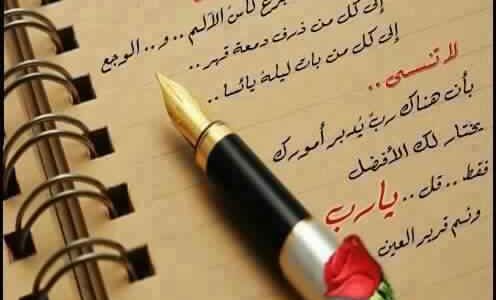 تجرع كأس الألم .. و .. الوجع
إلى كل من ذرف دمعة قهر ..
إلى كل من بات ليلة يائسا ..
لا تنسى ..
بأن هناك رب يدبر أمورك
يختار لك الأفضل
فقط .. قل .. يارب
ونم قرير العين